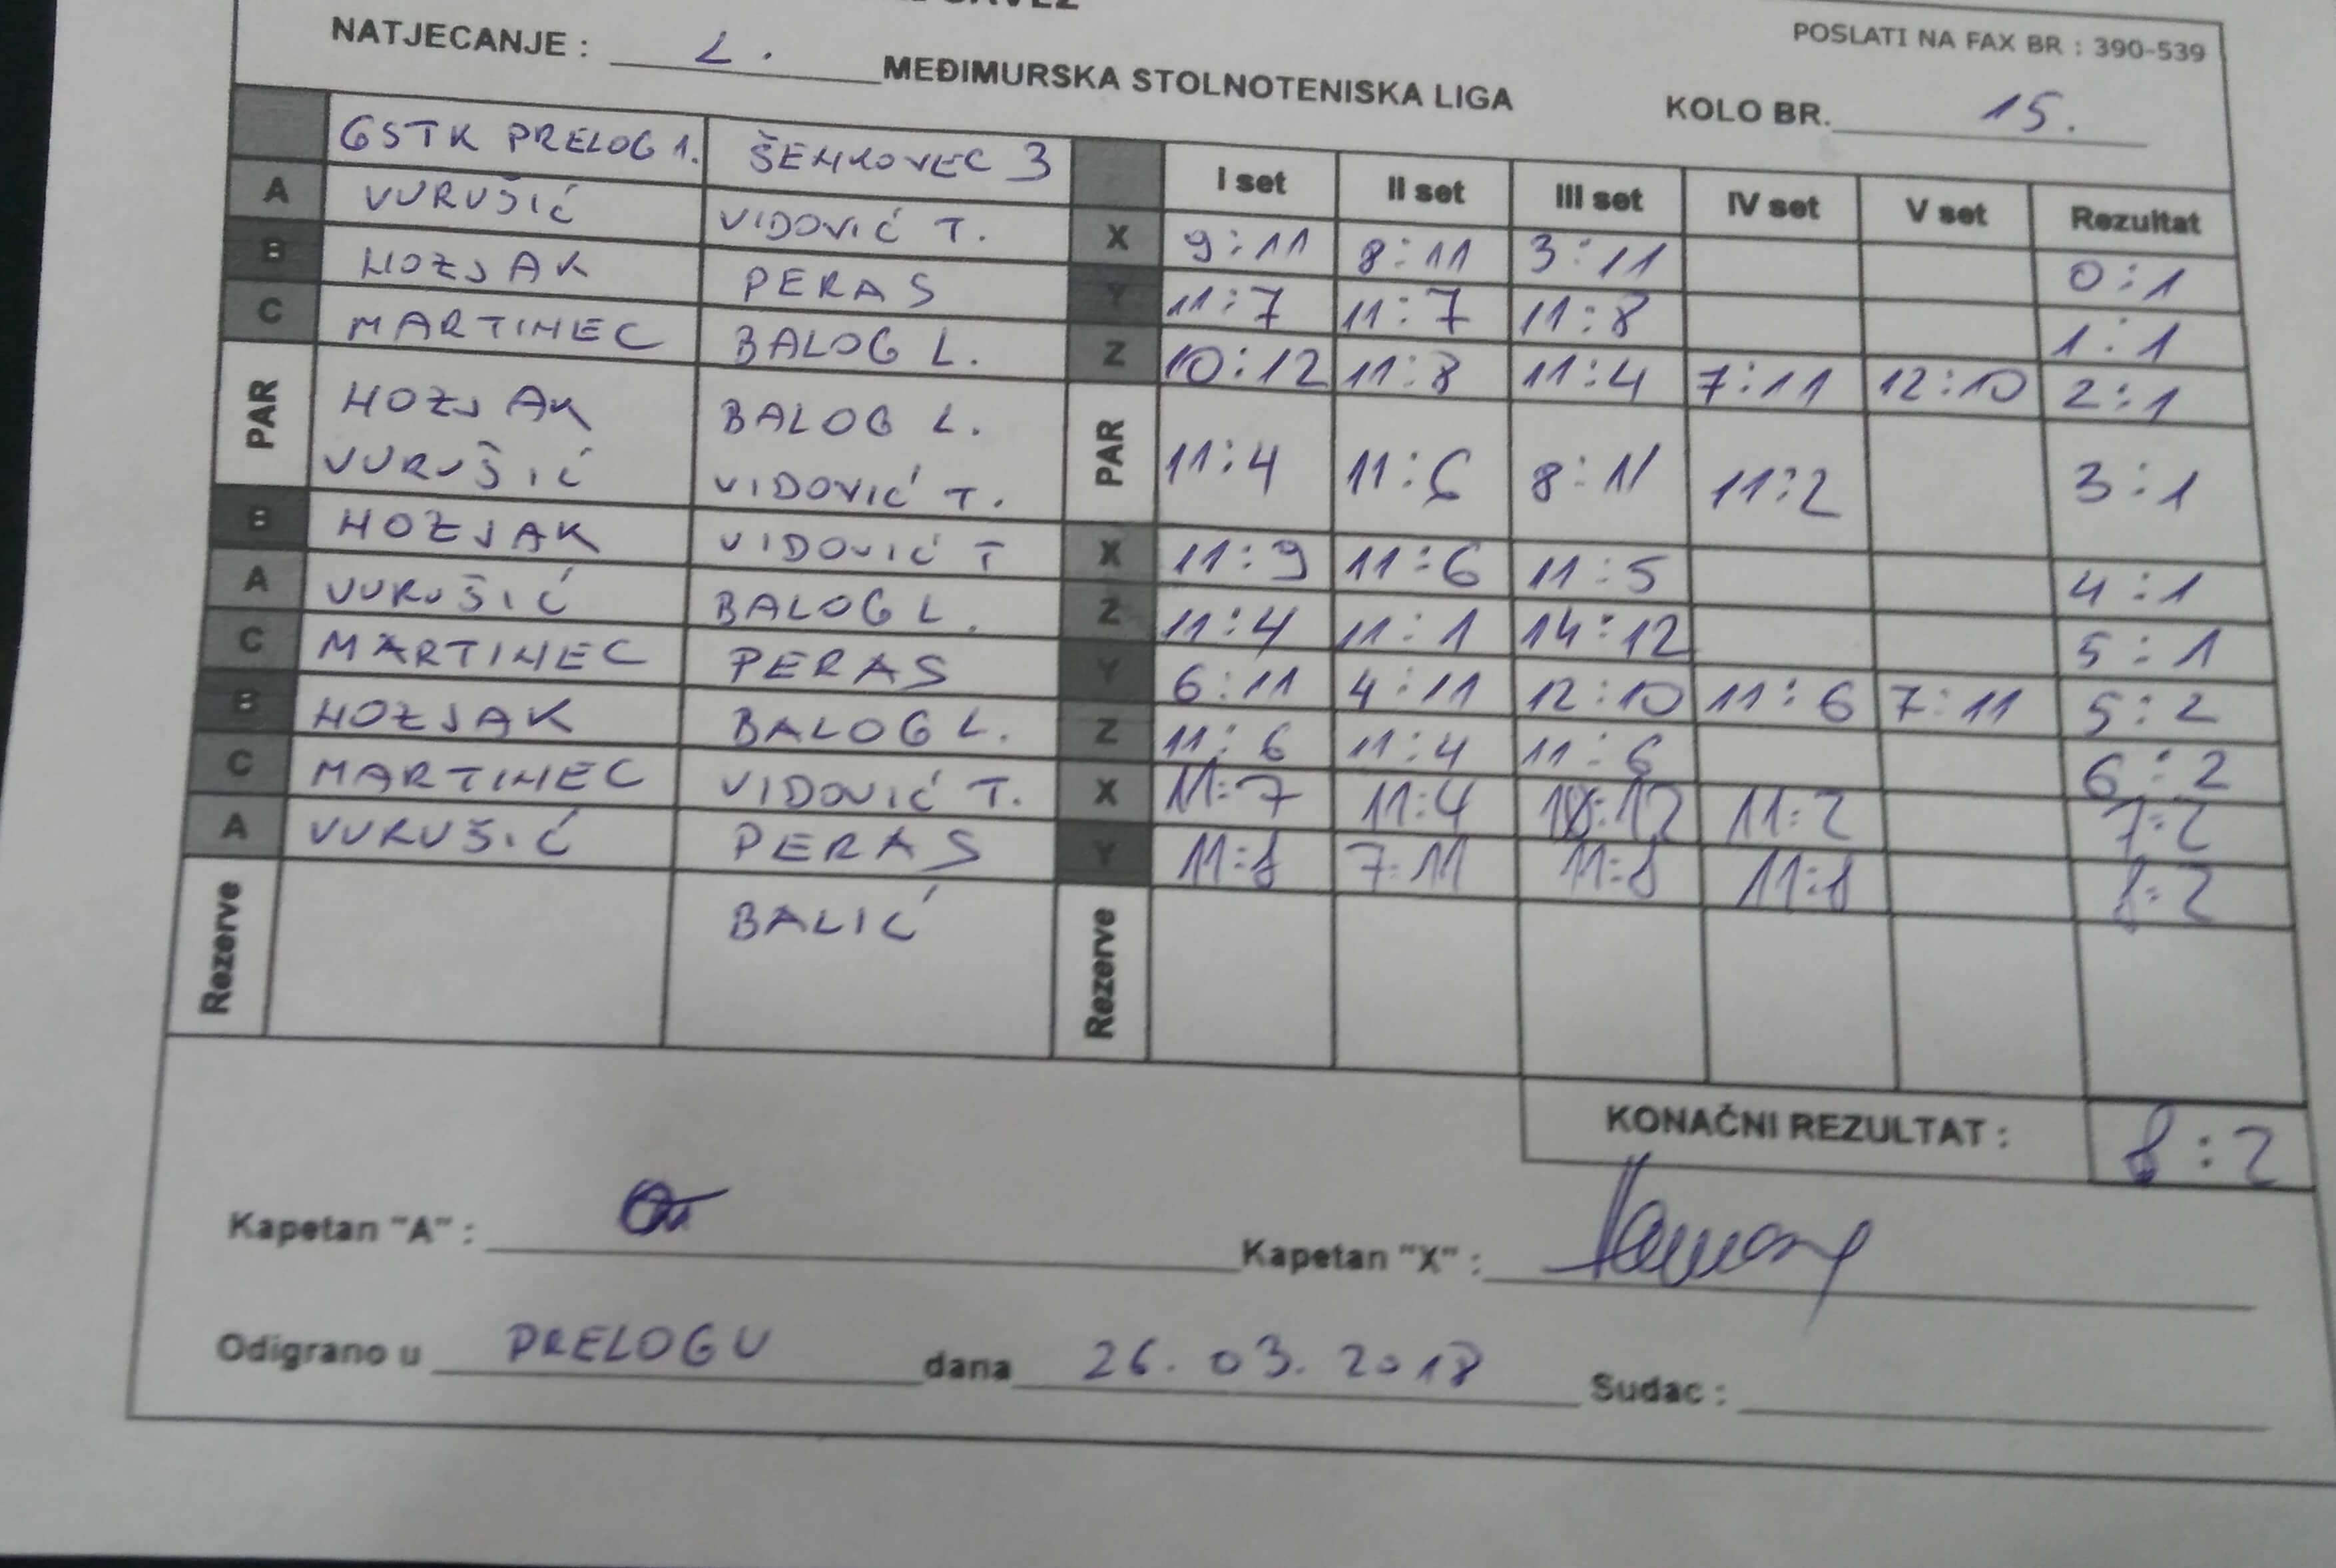 POSLATI NA FAX BR : 390-539
NATJECANJE : 2. MEĐIMURSKA STOLNOTENISKA LIGA KOLO BR. 15.
GSTK PRELOG 1. ŠENKOVEC 3 I set II set III set IV set V set Rezultat
A VURUŠIĆ VIDOVIĆ T. X 9:11 8:11 3:11 0:1
B HOZJAK PERAS Y 11:7 11:7 11:8 1:1
C MARTINEC BALOG L. Z 10:12 11:8 11:4 7:11 12:10 2:1
PAR HOZJAK BALOG L. PAR 11:4 11:6 8:11 11:2 3:1
VURUŠIĆ VIDOVIĆ T.
B HOZJAK VIDOVIĆ T X 11:9 11:6 11:5 4:1
A VURUŠIĆ BALOG L. Z 11:4 11:1 14:12 5:1
C MARTINEC PERAS Y 6:11 4:11 12:10 11:6 7:11 5:2
B HOZJAK BALOG L. Z 11:6 11:4 11:6 6:2
C MARTINEC VIDOVIĆ T. X 11:7 11:4 10:12 11:2 7:2
A VURUŠIĆ PERAS Y 11:8 7:11 11:8 11:8 8:2
Rezerve BALIĆ Rezerve
KONAČNI REZULTAT : 8:2
Kapetan "A" : Kapetan "X" :
Odigrano u PRELOGU dana 26.03.2018 Sudac :